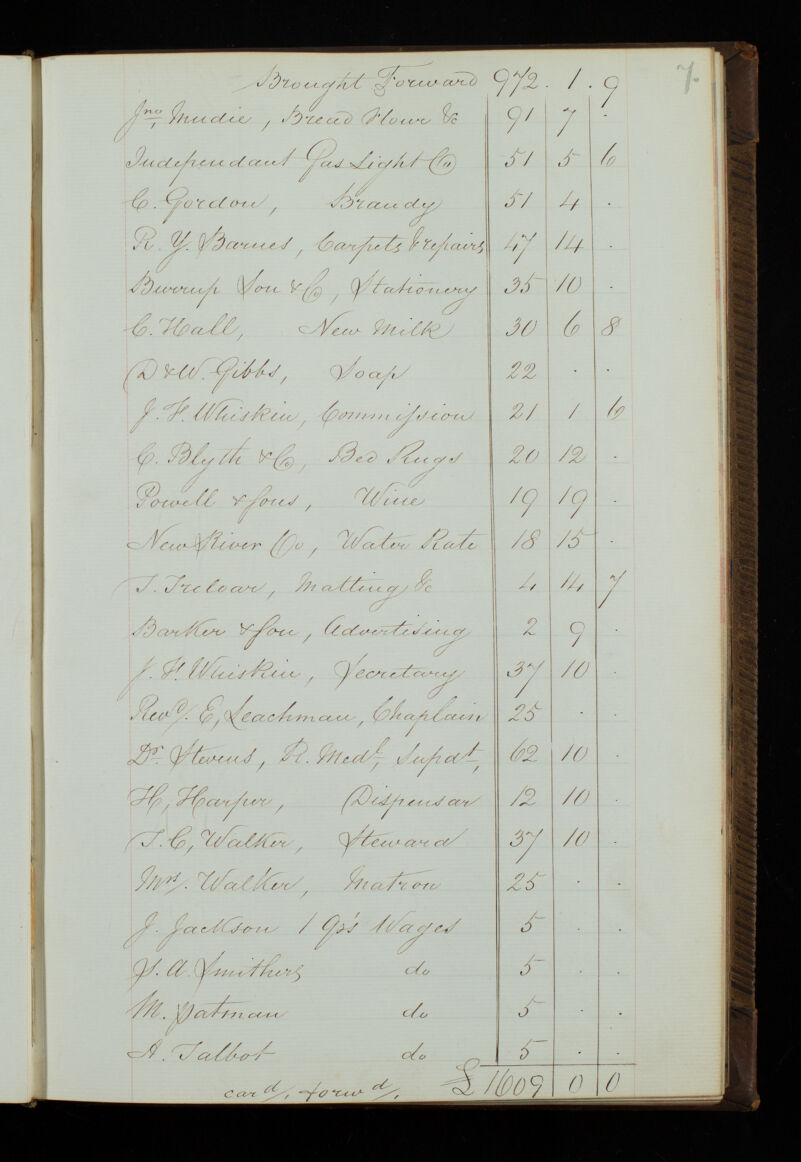 7.
Brought Forward 972 . 1 . 9
Jno. Mudie, Bread Flour &c 91 7 .
Independant Gas Light Co 51 5 6
C. Gordon, Brandy 51 4 .
R. Y. Barnes, Carpets & repairs 47 14 .
Burrup Son & Co, Stationery 35 10 .
C. Hall, New Milk 30 6 8
D & W. Gibbs, Soap 22 . .
J. F. Whiskin, Commission 21 1 6
C. Blyth & Co, Bed Rugs 20 12 .
Powell & Sons, Wine 19 19 .
New River Co, Water Rate 18 15 .
T. Treloar, Matting &c 4 14 7
Barker & Son, Advertising 2 9 .
J. F. Whiskin, Secretary 37 10 .
Revd/. E, Leachman, Chaplain 25 . .
Dr. Stevens, R. Medl, Supdt, 62 10 .
H, Harper, Dispensar 12 10 .
T. C, Walker, Steward 37 10 .
Mrs/. Walker, Matron 25 . .
J. Jackson 1 Qr's Wages 5 . .
S. A. Smithers do 5 . .
M. Patman do 5 . .
A. Talbot do 5 . .
card/. forwd/. £ 1609 0 0